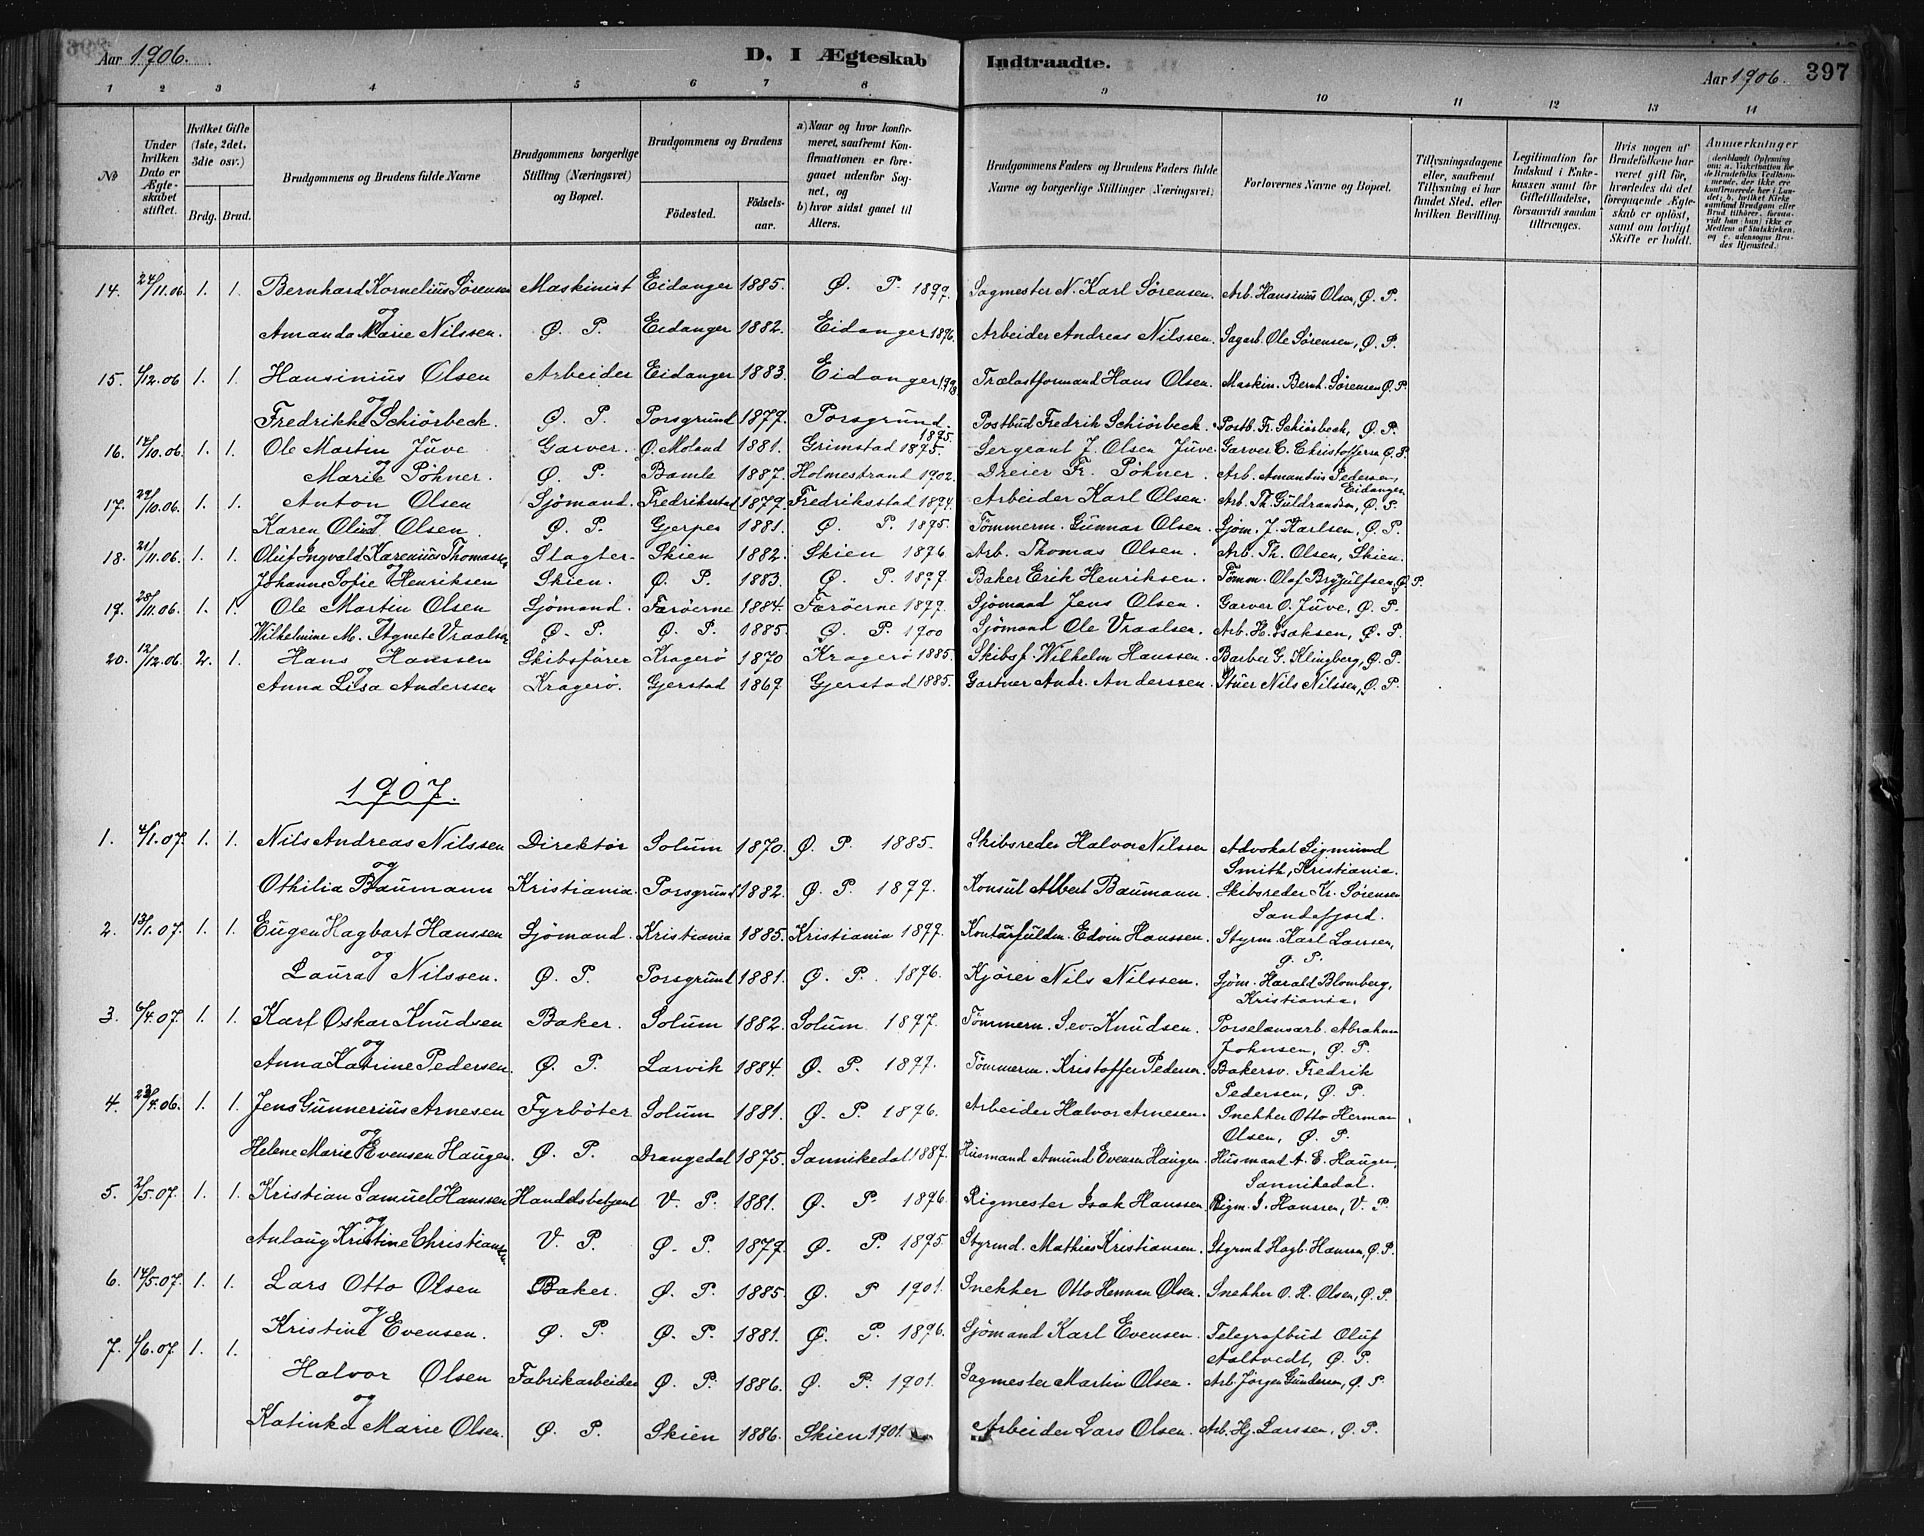 Aar 1906. D. I Ægteskab Indtraadte. Aar 1906. 397
1 2 3 4 5 6 7 8 9 10 11 12 13 14
No
Under hvilken Dato er Ægteskabet stiftet.
Hvilket Gifte (1ste, 2det, 3die osv.)
Brdg. Brud.
Brudgommens og Brudens fulde Navne
Brudgommens borgerlige Stilling (Næringsvei) og Bopæl.
Brudgommens og Brudens
Fødested. Fødselsaar.
a) Naar og hvor konfirmeret, saafremt Konfirmationen er foregaaet udenfor Sognet, og
b) hvor sidst gaaet til Alters.
Brudgommens Faders og Brudens Faders fulde Navne og borgerlige Stillinger (Næringsvei)
Forlovernes Navne og Bopæl.
Tillysningsdagene eller, saafremt Tillysning ei har fundet Sted, efter hvilken Bevilling.
Legitimation for Indskud i Enkekassen samt for Giftetilladelse, forsaavidt saadan tiltrænges.
Hvis nogen af Brudefolkene har været gift før, hvorledes da det foregaaende Ægteskab er opløst, samt om lovligt Skifte er holdt.
Anmærkninger
14. 24/11.06. 1. 1. Bernhard Kornelius Sørensen Maskinist Eidanger 1885. Ø. P. 1899. Sagmester N. Karl Sørensen. Arb. Hansinius Olsen, Ø. P.
og
Amanda Marie Nilssen. Ø. P. Eidanger 1882. Eidanger 1896. Arbeider Andreas Nilssen. Sagarb. Ole Sørensen, Ø. P.
15. 1/12.06 1. 1. Hansinius Olsen Arbeider Eidanger 1883. Eidanger Trælastformand Hans Olsen. Maskin. Bernt. Sørensen Ø. P.
og
Fredrikke Schiørbeck. Ø. P. Porsgrund 1879. Porsgrund. 1895. Postbud Fredrik Schiørbeck. Postb. Fr. Schiørbeck, Ø. P.
16. 14/10.06. 1. 1. Ole Martin Juve Garver. Ø. Moland 1881. Grimstad 1895. Sergeant J. Olsen Juve Garver C. Christoffersen Ø. P.
og
Marie Pöhner. Ø. P. Bamle 1887. Holmestrand 1902. Dreier Fr. Pöhner. Arb. Amandus Pedersen, Eidanger
17. 29/10.06. 1. 1. Anton Olsen Sjømand. Fredriksstad 1879. Fredriksstad 1894. Arbeider Karl Olsen. Arb. Th. Guldrandsen, Ø. P.
og
Karen Olud Olsen Ø. P. Gjerpen 1881. Ø. P. 1895. Tømmerm. Gunnar Olsen. Sjøm. J. Karlsen, Ø. P.
18. 21/11.06. 1. 1. Oluf Ingvald Karenius Thomassen Slagter. Skien 1882. Skien 1896. Arb. Thomas Olsen. Arb. Th. Olsen, Skien.
og
Johanne Sofie Henriksen Skien. Ø. P. 1883. Ø. P. 1899. Baker Erik Henriksen. Tømm. Olaf Brynjulfsen, Ø. P.
19. 28/11.06. 1. 1. Ole Martin Olsen Sjømand. Færøerne 1884. Færøerne 1899. Sjømand Jens Olsen. Garver O. Juve, Ø. P.
og
Wilhelmine M. Agnete Vraalsen Ø. P. Ø. P. 1885. Ø. P. 1900 Sjømand Ole Vraalsen. Arb. H. Isaksen, Ø. P.
20. 12/12.06. 2. 1. Hans Hanssen Skibsfører Kragerø 1870 Kragerø 1885. Skibsf. Wilhelm Hanssen. Barber G. Klingberg, Ø. P.
og
Anna Lisa Anderssen Kragerø. Gjerstad 1869 Gjerstad 1885. Gartner Andr. Anderssen. Stuer Nils Nilssen, Ø. P.
1907.
1. 4/1.07. 1. 1. Nils Andreas Nilssen Direktør Solum 1870. Ø. P. 1885. Skibsreder Halvor Nilssen Advokat Sigmund Smith, Kristiania.
og
Othilia Baumann Kristiania. Porsgrund 1882. Ø. P. 1899. Konsul Albert Baumann. Skibsreder Kr. Sørensen Sandefjord.
2. 13/1.07. 1. 1. Eugen Hagbart Hanssen Sjømand. Kristiania 1885. Kristiania 1899. Edvin Hanssen. Styrm. Karl Larsen, Ø. P.
og
Laura Nilssen. Ø. P. Porsgrund 1881. Ø. P. 1896. Kjører Nils Nilssen. Sjøm. Harald Blomberg, Kristiania.
3. 6/4.07. 1. 1. Karl Oskar Knudsen Baker. Solum 1882. Solum 1897. Tømmerm. Sev. Knudsen. Porselansarb. Abraham Johnsen, Ø. P.
og
Anna Katrine Pedersen. Ø. P. Larvik 1884. Ø. P. 1899. Tømmerm. Kristoffer Pedersen. Bakersv. Fredrik Pedersen, Ø. P.
4. 23/4.06. 1. 1. Jens Gunnerius Arnesen Fyrbøter Solum 1881. Ø. P. 1896. Arbeider Halvor Arnesen. Snekker Otto Herman Olsen, Ø. P.
og
Helene Marie Evensen Haugen. Ø. P. Drangedal 1875. Sannikedal 1889. Husmand Amund Evensen Haugen. Husmand A. E. Haugen, Sannikedal.
5. 2/5.07. 1. 1. Kristian Samuel Hanssen Handelsbetjent V. P. 1881. Ø. P. 1896. Rigmester Isak Hanssen. Rigm. I. Hanssen, V. P.
og
Anlaug Kristine Christiansen V. P. Ø. P. 1879. Ø. P. 1895 Styrmd. Mathias Kristiansen. Styrmd Hagb. Hansen, Ø. P.
6. 14/5.07. 1. 1. Lars Otto Olsen Baker. Ø. P. 1885. Ø. P 1901. Snekker Otto Herman Olsen. Snekker O. H. Olsen, Ø. P.
og
Kristine Evensen. Ø. P. Ø. P. 1881. Ø. P. 1896. Sjømand Karl Evensen. Telegrafbud Oluf Aaltvedt, Ø. P.
7. 1/6.07. 1. 1. Halvor Olsen Fabrikarbeider Ø. P. 1886. Ø. P. 1901. Sagmester Martin Olsen. Arb. Jørgen Gundersen, Ø. P.
og
Katinka Marie Olsen. Ø. P. Skien 1886. Skien 1901. Arbeider Lars Olsen. Arb. Hj. Larssen, Ø. P.